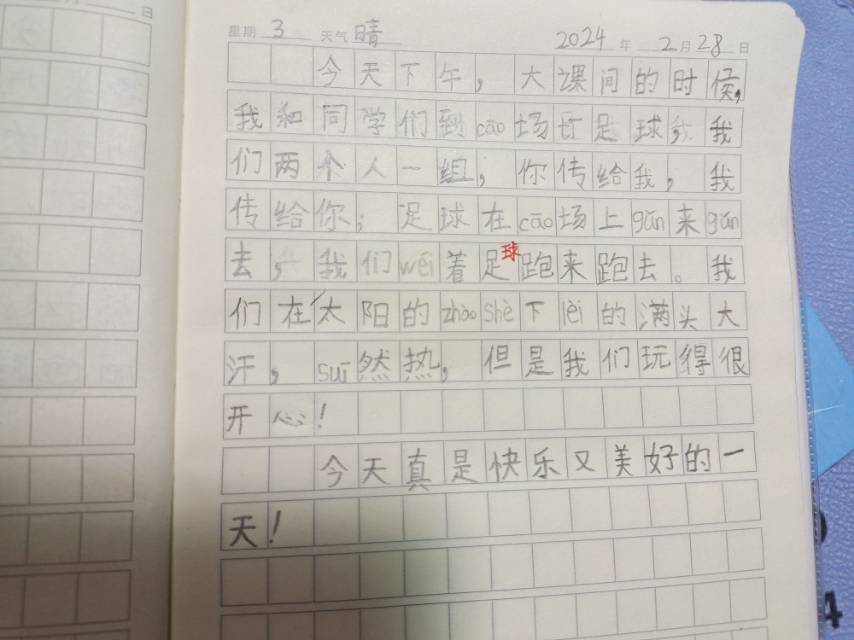 星期 3 天气 晴 2024 年 2 月 28 日
今天下午，大课间的时候，
我和同学们到cāo场上足球，我
们两个人一组，你传给我，我
传给你，足球在cāo场上gǔn来gǔn
去，我们wēi着足球跑来跑去。我
们在太阳的zhào shè下lèi的满头大
汗，suī然热，但是我们玩得很
开心！
今天真是快乐又美好的一
天！
日
4